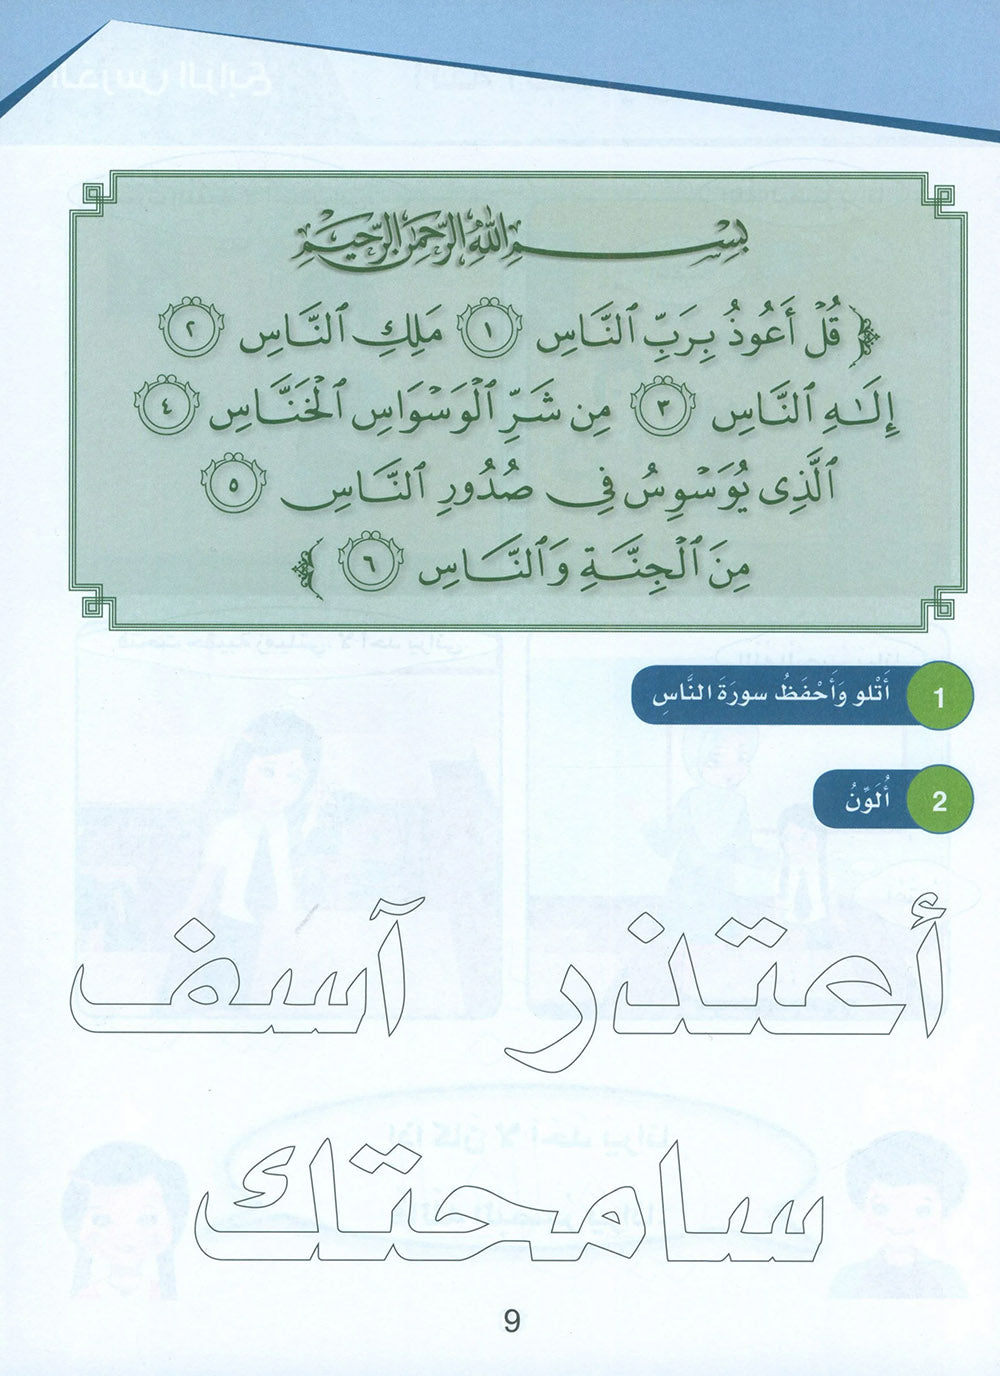 بِسْمِ اللَّهِ الرَّحْمَٰنِ الرَّحِيمِ
﴿ قُلْ أَعُوذُ بِرَبِّ ٱلنَّاسِ ١ مَلِكِ ٱلنَّاسِ ٢
إِلَـٰهِ ٱلنَّاسِ ٣ مِن شَرِّ ٱلْوَسْوَاسِ ٱلْخَنَّاسِ ٤
ٱلَّذِى يُوَسْوِسُ فِى صُدُورِ ٱلنَّاسِ ٥
مِنَ ٱلْجِنَّةِ وَٱلنَّاسِ ٦ ﴾
1 أَتْلو وَأَحْفَظُ سورَةَ النَّاسِ
2 أُلَوِّنُ
أعتذر آسف
سامحتك
9